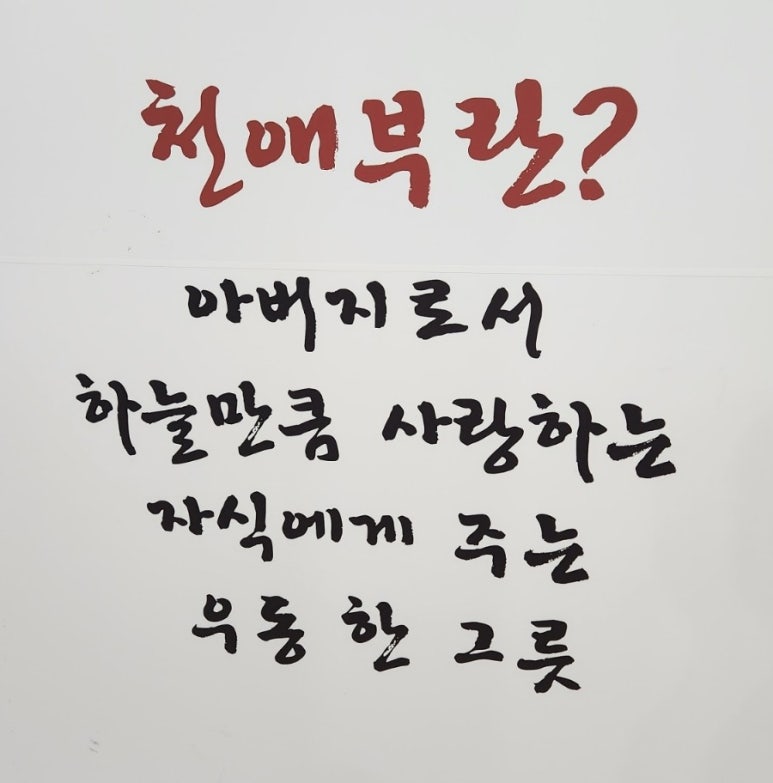 천애부란?
아버지로서
하늘만큼 사랑하는
자식에게 주는
우동 한 그릇